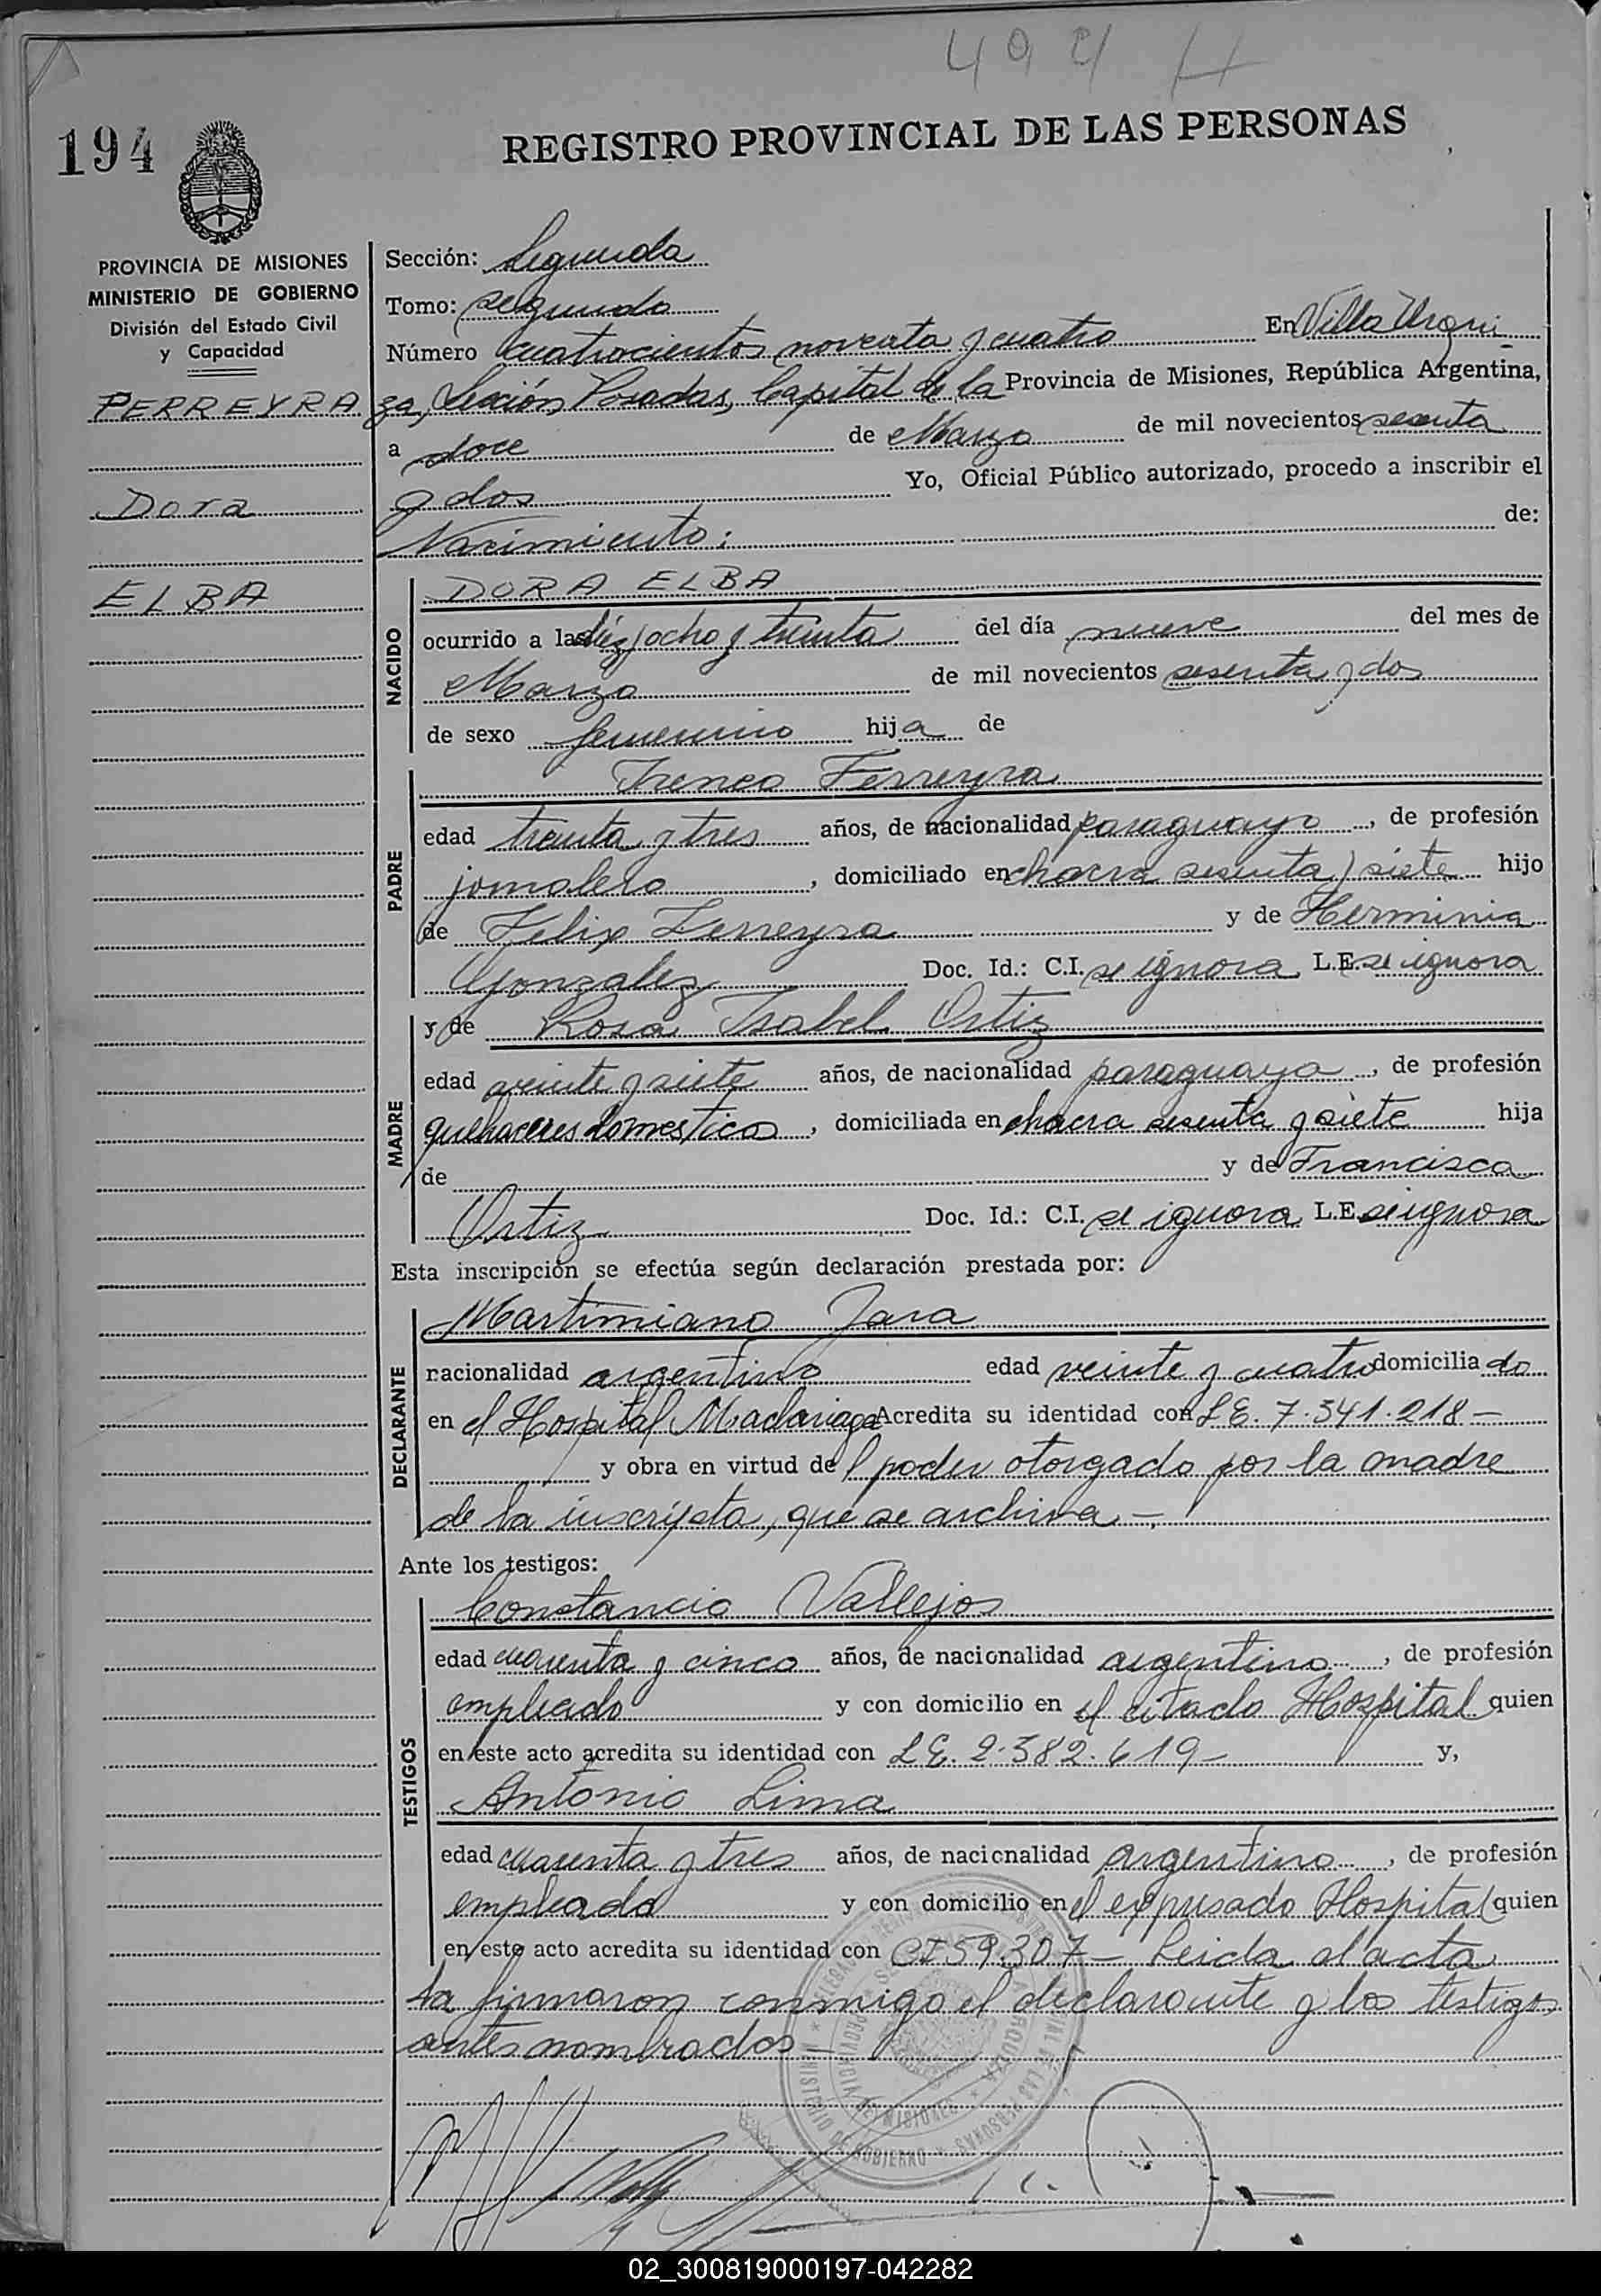 494 H
194
REGISTRO PROVINCIAL DE LAS PERSONAS
PROVINCIA DE MISIONES
MINISTERIO DE GOBIERNO
División del Estado Civil
y Capacidad
FERREYRA
Dora
ELBA
Sección: Segunda
Tomo: segundo
Número cuatrocientos noventa y cuatro En Villa Urqui
za, Sección Posadas, Capital de la Provincia de Misiones, República Argentina,
a doce de Marzo de mil novecientos sesenta
y dos Yo, Oficial Público autorizado, procedo a inscribir el
Nacimiento: de:
NACIDO
DORA ELBA
ocurrido a las diez y ocho y treinta del día nueve del mes de
Marzo de mil novecientos sesenta y dos
de sexo femenino hija de
PADRE
Ireneo Ferreyra
edad treinta y tres años, de nacionalidad paraguayo, de profesión
jornalero, domiciliado en chacra sesenta y siete hijo
de Felix Ferreyra y de Herminia
Gonzalez Doc. Id.: C.I. se ignora L.E. se ignora
MADRE
y de Rosa Isabel Ortiz
edad veinte y siete años, de nacionalidad paraguaya, de profesión
quehaceres domesticos, domiciliada en chacra sesenta y siete hija
de y de Francisca
Ortiz Doc. Id.: C.I. se ignora L.E. se ignora
Esta inscripción se efectúa según declaración prestada por:
DECLARANTE
Martimiano Jara
nacionalidad argentino edad veinte y cuatro domiciliado
en el Hospital Madariaga Acredita su identidad con L E. 7.341.218 —
y obra en virtud del poder otorgado por la madre
de la inscripta, que se archiva —
Ante los testigos:
TESTIGOS
Constancio Vallejos
edad cuarenta y cinco años, de nacionalidad argentino, de profesión
empleado y con domicilio en el citado Hospital quien
en este acto acredita su identidad con L E. 2.382.619 — y,
Antonio Lima
edad cuarenta y tres años, de nacionalidad argentino, de profesión
empleado y con domicilio en el expresado Hospital quien
en este acto acredita su identidad con CI 59.307 — Leida el acta
la firmaron conmigo el declarante y los testigos
antes nombrados —
MINISTERIO DE GOBIERNO
PROVINCIA DE MISIONES
02_300819000197-042282